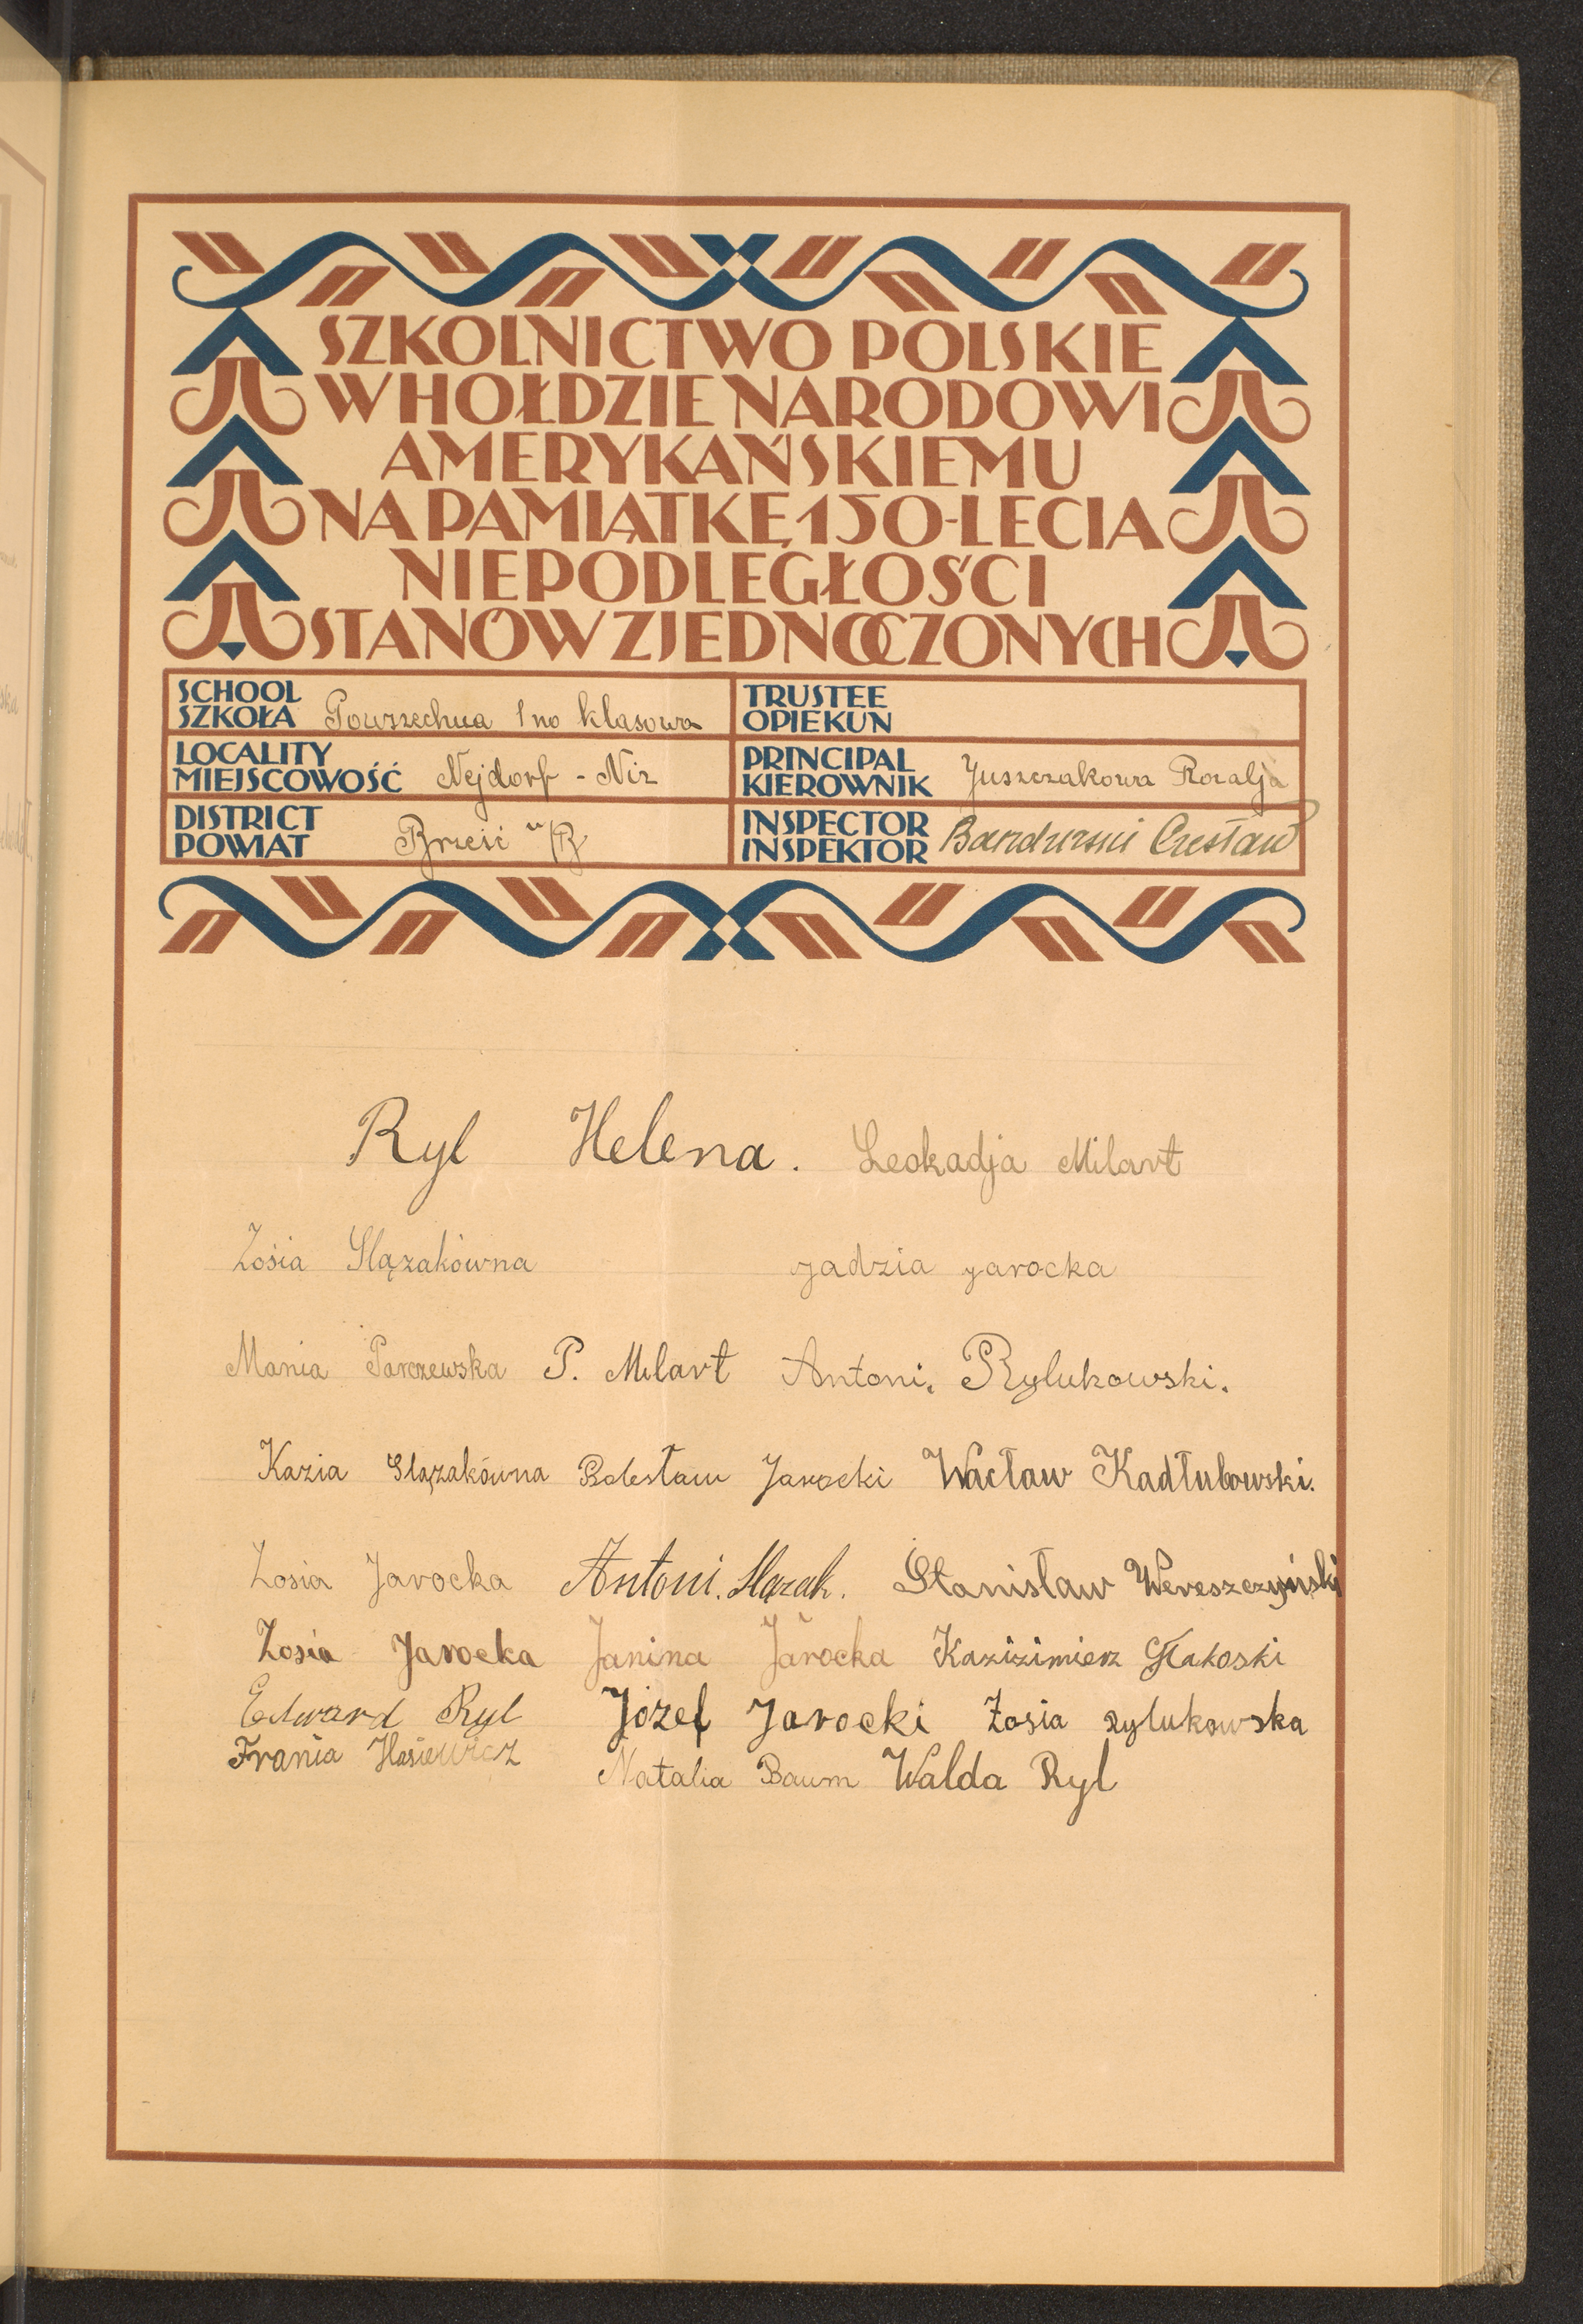 SZKOLNICTWO POLSKIE
W HOŁDZIE NARODOWI
AMERYKAŃSKIEMU
NA PAMIĄTKĘ 150-LECIA
NIEPODLEGŁOŚCI
STANÓW ZJEDNOCZONYCH
SCHOOL
SZKOŁA Powszechna 1no klasowa
TRUSTEE
OPIEKUN
LOCALITY
MIEJSCOWOŚĆ Nejdorf - Niz
PRINCIPAL
KIEROWNIK Juszczakowa Rozalja
DISTRICT
POWIAT Brześć n/B
INSPECTOR
INSPEKTOR Czesław
Ryl Helena. Leokadja Milart
Zosia Ślązakówna jadzia jarocka
Mania Parczewska P. Milart Antoni. Rylukowski.
Kazia Slązakówna Bolesław Jarocki Wacław Kadłubowski.
Zosia Jarocka Antoni. Slązak. Stanisław Wereszczyński
Zosia Jarocka Janina Jarocka Kazizimierz
Edward Ryl Józef Jarocki Zosia Rylukowska
Frania Natalia Baum Walda Ryl